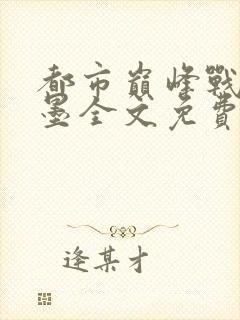 都市巔峰戰
墨全文免費
逢某才